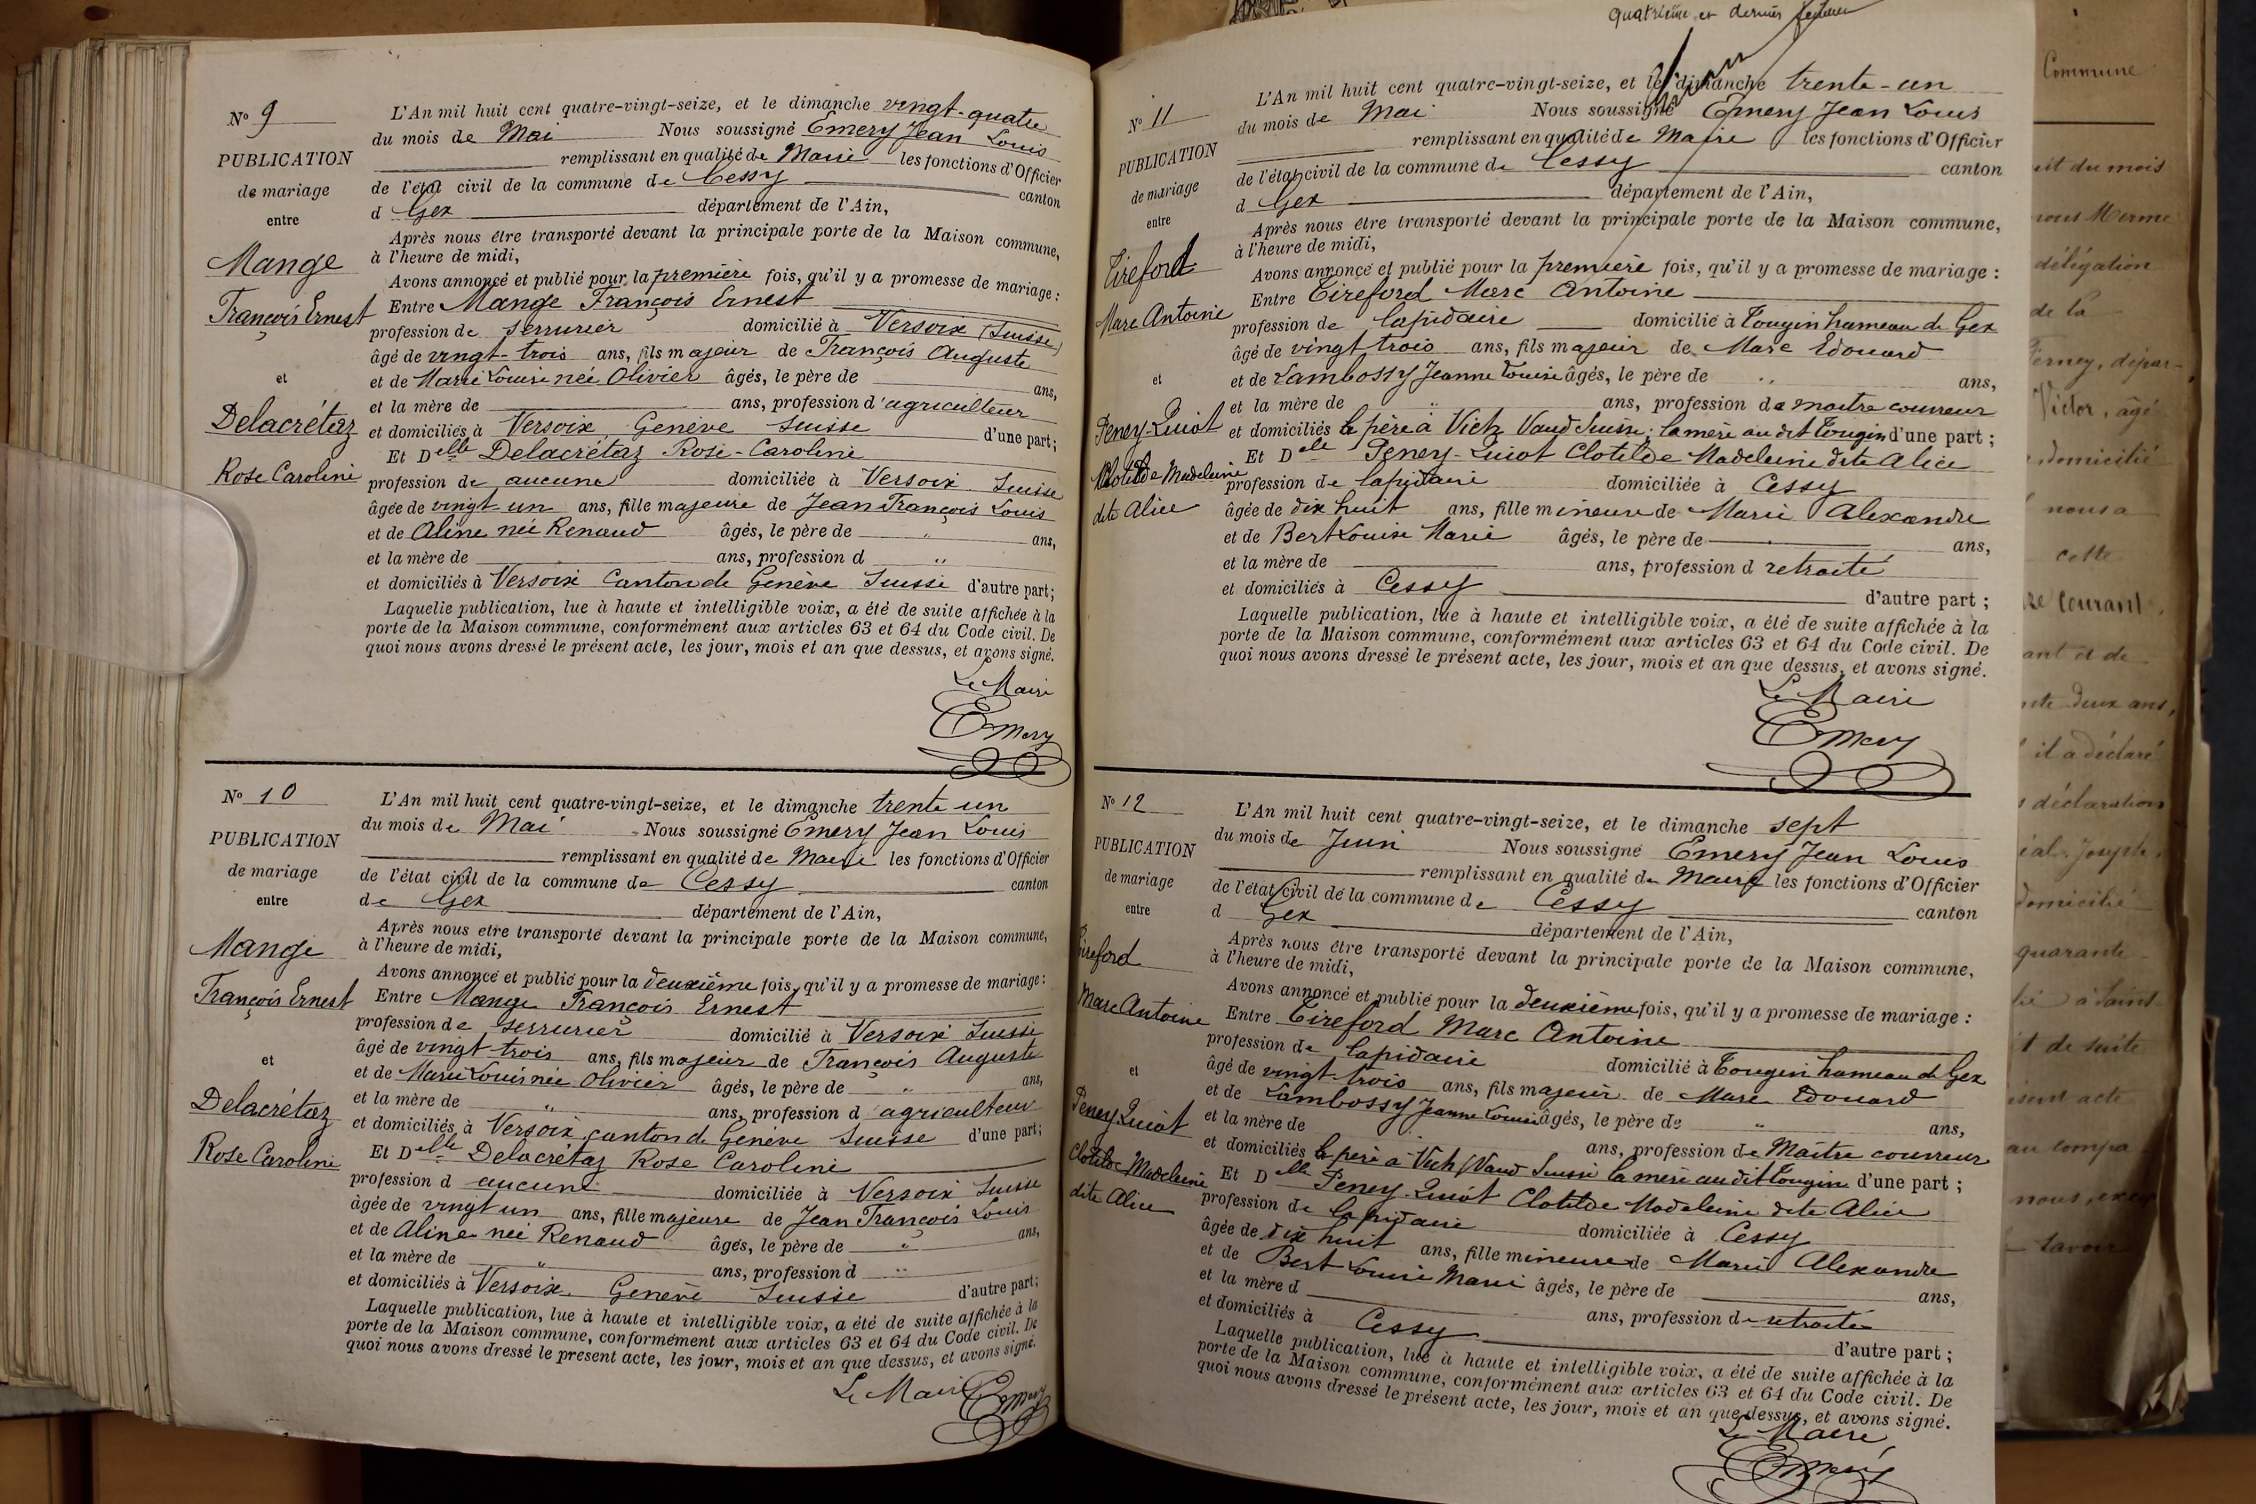 N° 9
PUBLICATION
de mariage
entre
Mange
François Ernest
et
Delacrétaz
Rose Caroline
L'An mil huit cent quatre-vingt-seize, et le dimanche vingt-quatre
du mois de Mai Nous soussigné Emery Jean Louis
remplissant en qualité de Maire les fonctions d'Officier
de l'état civil de la commune de Cessy canton
d Gex département de l'Ain,
Après nous être transporté devant la principale porte de la Maison commune,
à l'heure de midi,
Avons annoncé et publié pour la première fois, qu'il y a promesse de mariage :
Entre Mange François Ernest
profession de serrurier domicilié à Versoix (Suisse)
âgé de vingt-trois ans, fils majeur de François Auguste
et de Marie Louise née Olivier âgés, le père de ans,
et la mère de ans, profession d'agriculteur
et domiciliés à Versoix Genève Suisse d'une part ;
Et Delle Delacrétaz Rose-Caroline
profession de aucune domiciliée à Versoix Suisse
âgée de vingt un ans, fille majeure de Jean François Louis
et de Aline née Renaud âgés, le père de " ans,
et la mère de ans, profession d "
et domiciliés à Versoix Canton de Genève Suisse d'autre part ;
Laquelle publication, lue à haute et intelligible voix, a été de suite affichée à la
porte de la Maison commune, conformément aux articles 63 et 64 du Code civil. De
quoi nous avons dressé le présent acte, les jour, mois et an que dessus, et avons signé.
Le Maire
Emery
N° 10
PUBLICATION
de mariage
entre
Mange
François Ernest
et
Delacrétaz
Rose Caroline
L'An mil huit cent quatre-vingt-seize, et le dimanche trente un
du mois de Mai Nous soussigné Emery Jean Louis
remplissant en qualité de Maire les fonctions d'Officier
de l'état civil de la commune de Cessy canton
de Gex département de l'Ain,
Après nous être transporté devant la principale porte de la Maison commune,
à l'heure de midi,
Avons annoncé et publié pour la deuxième fois, qu'il y a promesse de mariage :
Entre Mange François Ernest
profession de serrurier domicilié à Versoix Suisse
âgé de vingt-trois ans, fils majeur de François Auguste
et de Marie Louise née Olivier âgés, le père de " ans,
et la mère de " ans, profession d agriculteur
et domiciliés à Versoix canton de Genève Suisse d'une part ;
Et Delle Delacrétaz Rose Caroline
profession d aucune domiciliée à Versoix Suisse
âgée de vingt un ans, fille majeure de Jean François Louis
et de Aline née Renaud âgés, le père de " ans,
et la mère de " ans, profession d "
et domiciliés à Versoix Genève Suisse d'autre part ;
Laquelle publication, lue à haute et intelligible voix, a été de suite affichée à la
porte de la Maison commune, conformément aux articles 63 et 64 du Code civil. De
quoi nous avons dressé le présent acte, les jour, mois et an que dessus, et avons signé.
Le Maire Emery
quatrième et dernier
N° 11
PUBLICATION
de mariage
entre
Tireford
Marc Antoine
et
Peney-Quiot
Clotilde Madeleine
dite Alice
L'An mil huit cent quatre-vingt-seize, et le dimanche trente-un
du mois de Mai Nous soussigné Emery Jean Louis
remplissant en qualité de Maire les fonctions d'Officier
de l'état civil de la commune de Cessy canton
d Gex département de l'Ain,
Après nous être transporté devant la principale porte de la Maison commune,
à l'heure de midi,
Avons annoncé et publié pour la première fois, qu'il y a promesse de mariage :
Entre Tireford Marc Antoine
profession de lapidaire domicilié à Tougin hameau de Gex
âgé de vingt trois ans, fils majeur de Marc Edouard
et de Lambossy Jeanne Louise âgés, le père de " ans,
et la mère de " ans, profession de maître couvreur
et domiciliés le père à Vich Vaud Suisse, la mère au dit Tougin d'une part ;
Et Delle Peney-Quiot Clotilde Madeleine dite Alice
profession de lapidaire domiciliée à Cessy
âgée de dix huit ans, fille mineure de Marie Alexandre
et de Bert Louise Marie âgés, le père de ans,
et la mère de ans, profession d retraité
et domiciliés à Cessy d'autre part ;
Laquelle publication, lue à haute et intelligible voix, a été de suite affichée à la
porte de la Maison commune, conformément aux articles 63 et 64 du Code civil. De
quoi nous avons dressé le présent acte, les jour, mois et an que dessus, et avons signé.
Le Maire
Emery
N° 12
PUBLICATION
de mariage
entre
Tireford
Marc Antoine
et
Peney Quiot
Clotilde Madeleine
dite Alice
L'An mil huit cent quatre-vingt-seize, et le dimanche sept
du mois de Juin Nous soussigné Emery Jean Louis
remplissant en qualité de Maire les fonctions d'Officier
de l'état civil de la commune de Cessy canton
d Gex département de l'Ain,
Après nous être transporté devant la principale porte de la Maison commune,
à l'heure de midi,
Avons annoncé et publié pour la deuxième fois, qu'il y a promesse de mariage :
Entre Tireford Marc Antoine
profession de lapidaire domicilié à Tougin hameau de Gex
âgé de vingt trois ans, fils majeur de Marc Edouard
et de Lambossy Jeanne Louise âgés, le père de " ans,
et la mère de ans, profession de Maître couvreur
et domiciliés le père à Vich (Vaud Suisse la mère au dit Tougin d'une part ;
Et Delle Peney-Quiot Clotilde Madeleine dite Alice
profession de lapidaire domiciliée à Cessy
âgée de dix huit ans, fille mineure de Marie Alexandre
et de Bert Louise Marie âgés, le père de ans,
et la mère d ans, profession de retraité
et domiciliés à Cessy d'autre part ;
Laquelle publication, lue à haute et intelligible voix, a été de suite affichée à la
porte de la Maison commune, conformément aux articles 63 et 64 du Code civil. De
quoi nous avons dressé le présent acte, les jour, mois et an que dessus, et avons signé.
Le Maire
Emery
Commune
du mois
délégation
de la
Ferney, dépar-
Victor, âgé
domicilié
nous a
cette
courant
ant et de
deux ans,
il a déclaré
déclaration
Joseph,
domicilié
quarante
à Saint
t de suite
acte
au compa
nous,
savoir